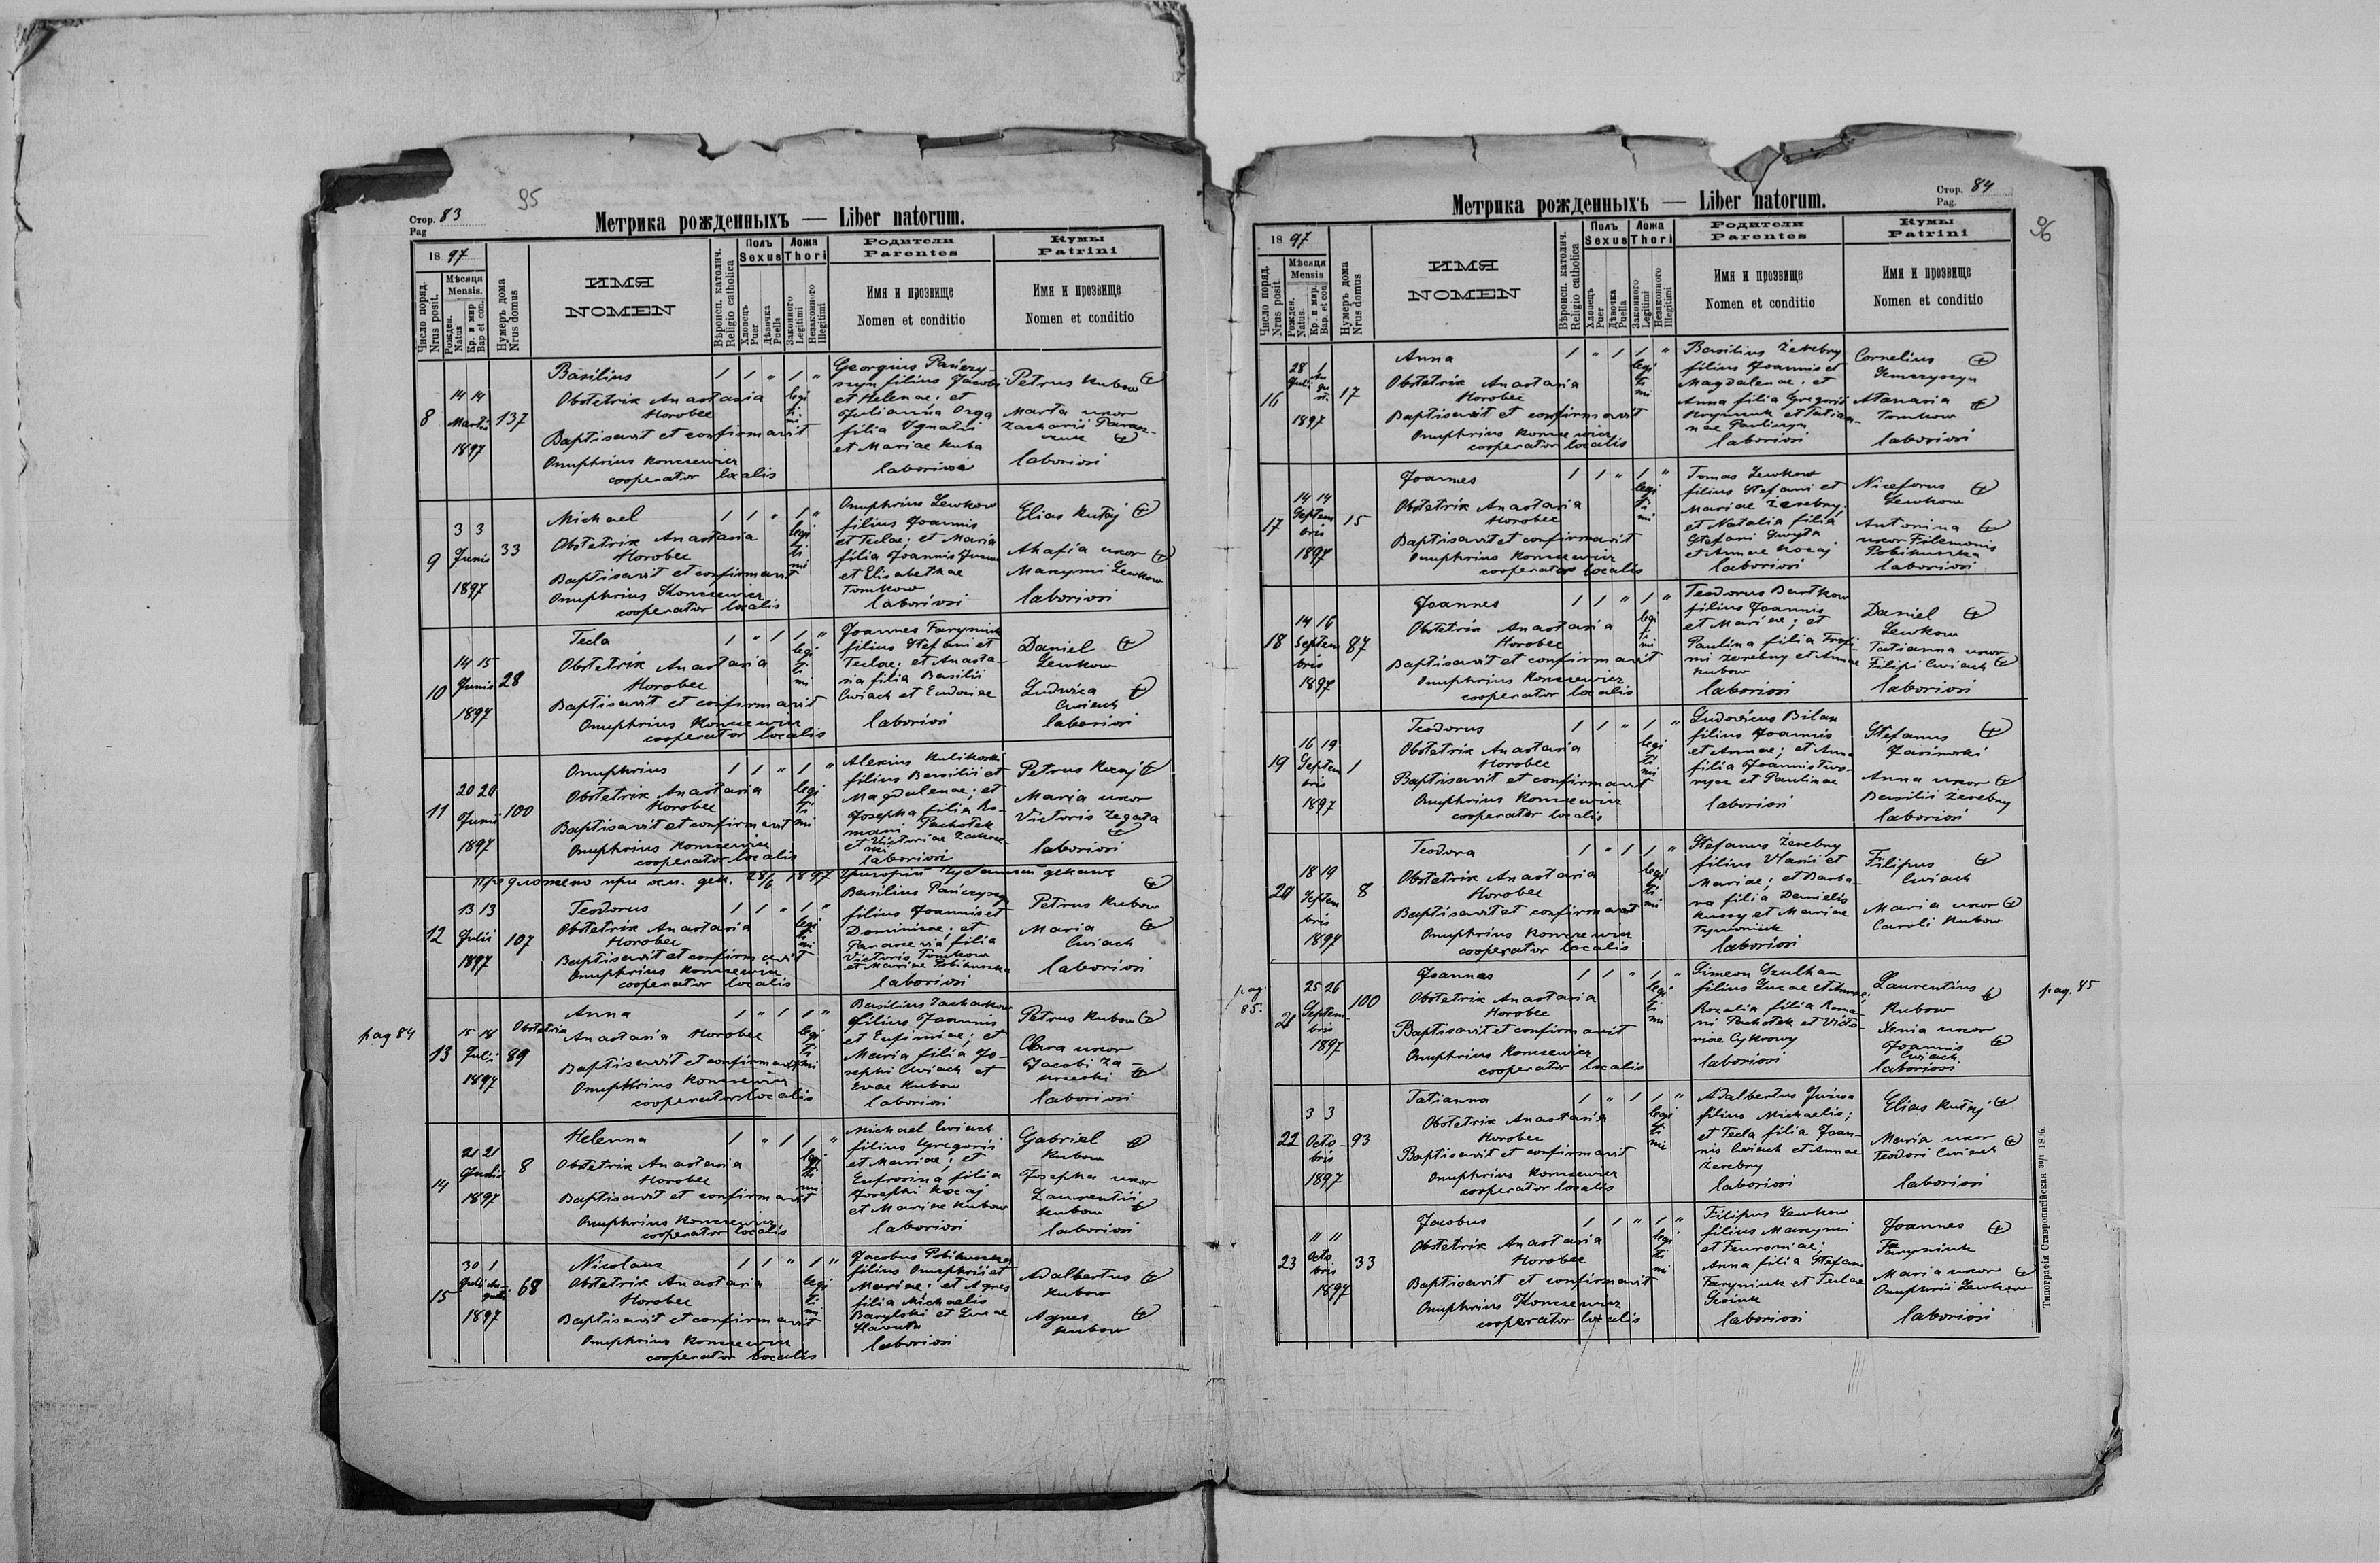 95
Стор. 83
Pag
Метрика рожденныхъ — Liber natorum.
18 97
Число поряд.
Nrus posit.
Мѣсяця
Mensis.
Рожден.
Natus
Кр. и мир.
Bap et con.
Нумеръ дома
Nrus domus
ИМЯ
NOMEN
Вѣроисп. католич.
Religio catholica
Полъ
Sexus
Хлопецъ
Puer
Дѣвочка
Puella
Ложа
Thori
Законного
Legitimi
Незаконного
Illegitimi
Родители
Parentes
Имя и прозвище
Nomen et conditio
Кумы
Patrini
Имя и прозвище
Nomen et conditio
8
14 14
Martii
1897
137
Basilius
Obstetrix Anastasia
Horobec
Baptisavit et confirmavit
Onuphrius
cooperator localis
1 1 " 1 "
legi
ti
mi
Georgius
filius Jacobi
et Helenae; et
Julianna
filia Ignatii
et Mariae Kuba
laboriosi
Petrus Kubow
Marta uxor
Zacharii
laboriosi
9
3 3
Junii
1897
33
Michael
Obstetrix Anastasia
Horobec
Baptisavit et confirmavit
Onuphrius
cooperator localis
1 1 " 1 "
legi
ti
mi
Onuphrius Lewkow
filius Joannis
et Teclae; et Maria
filia Joannis
et Elisabethae
Tomkow
laboriosi
Elias Kutaj
Ahafia uxor
Maxymi Lewkow
laboriosi
10
14 15
Junii
1897
28
Tecla
Obstetrix Anastasia
Horobec
Baptisavit et confirmavit
Onuphrius
cooperator localis
1 " 1 1 "
legi
ti
mi
Joannes Faryniuk
filius Stefani et
Teclae; et Anasta-
sia filia Basilii
Cwiach et Eudoxiae
laboriosi
Daniel
Lewkow
Ludwica
Cwiach
laboriosi
11
20 20
Junii
1897
100
Onuphrius
Obstetrix Anastasia
Horobec
Baptisavit et confirmavit
Onuphrius
cooperator localis
1 1 " 1 "
legi
ti
mi
Alexius
filius Basilii et
Magdalenae; et
Josepha filia Ro-
mani Pachotek
et Victoriae
laboriosi
Petrus
Maria uxor
Victoris Zegata
laboriosi
28/6 1897
12
13 13
Julii
1897
107
Teodorus
Obstetrix Anastasia
Horobec
Baptisavit et confirmavit
Onuphrius
cooperator localis
1 1 " 1 "
legi
ti
mi
Basilius
filius Joannis et
Dominicae; et
Parascevia filia
Victoris Tomkow
et Mariae Pobihuszka
laboriosi
Petrus Kubow
Maria
Cwiach
laboriosi
pag 84
13
15 18
Julii
1897
89
Anna
Obstetrix
Anastasia Horobec
Baptisavit et confirmavit
Onuphrius
cooperator localis
1 " 1 1 "
legi
ti
mi
Basilius
filius Joannis
et Eufimiae; et
Maria filia Jo-
sephi Cwiach et
Evae Kubow
laboriosi
Petrus Kubow
Clara uxor
Jacobi Za-
laboriosi
14
21 21
Julii
1897
8
Helenna
Obstetrix Anastasia
Horobec
Baptisavit et confirmavit
Onuphrius
cooperator localis
1 " 1 1 "
legi
ti
mi
Michael Cwiach
filius Gregorii
et Mariae; et
Eufrosina filia
Josephi Kozaj
et Mariae Kubow
laboriosi
Gabriel
Kubow
Josepha uxor
Laurentii
Kubow
laboriosi
15
30 1
Julii
1897
68
Nicolaus
Obstetrix Anastasia
Horobec
Baptisavit et confirmavit
Onuphrius
cooperator localis
1 1 " 1 "
legi
ti
mi
Jacobus Pobihuszka
filius Onuphrii et
Mariae; et Agnes
filia Michaelis
et Lucae
laboriosi
Adalbertus
Kubow
Agnes
Kubow
Стор. 84
Pag.
96
Метрика рожденныхъ — Liber natorum.
18 97
Число поряд.
Nrus posit.
Мѣсяця
Mensis
Рожден.
Natus.
Кр. и мир.
Bap. et con.
Нумеръ дома
Nrus domus
ИМЯ
NOMEN
Вѣроисп. католич.
Religio catholica
Полъ
Sexus
Хлопецъ
Puer
Дѣвочка
Puella
Ложа
Thori
Законного
Legitimi
Незаконного
Illegitimi
Родители
Parentes
Имя и прозвище
Nomen et conditio
Кумы
Patrini
Имя и прозвище
Nomen et conditio
16
28 1
Juli
1897
17
Anna
Obstetrix Anastasia
Horobec
Baptisavit et confirmavit
Onuphrius
cooperator localis
1 " 1 1 "
legi
ti
mi
Basilius Zerebny
filius Joannis et
Magdalenae; et
Anna filia Gregorii
et Tatian-
nae
laboriosi
Cornelius
Atanasia
Tomkow
laboriosi
17
14 14
Septem
bris
1897
15
Joannes
Obstetrix Anastasia
Horobec
Baptisavit et confirmavit
Onuphrius
cooperator localis
1 1 " 1 "
legi
ti
mi
Tomas Lewkow
filius Stefani et
Mariae Zerebny;
et Natalia filia
Stefani
et Annae Kozaj
laboriosi
Niceforus
Lewkow
Antonina
uxor Filemonis
Pobihuszka
laboriosi
18
14 16
Septem
bris
1897
87
Joannes
Obstetrix Anastasia
Horobec
Baptisavit et confirmavit
Onuphrius
cooperator localis
1 1 " 1 "
legi
ti
mi
Teodorus Bartkow
filius Joannis
et Mariae; et
Paulina filia Trofi-
mi Zerebny et Annae
Kubow
laboriosi
Daniel
Lewkow
Tatianna uxor
Filipi Cwiach
laboriosi
19
16 19
Septem
bris
1897
1
Teodorus
Obstetrix Anastasia
Horobec
Baptisavit et confirmavit
Onuphrius
cooperator localis
1 1 " 1 "
legi
ti
mi
Ludovicus Bilan
filius Joannis
et Annae; et Anna
filia Joannis
et Paulinae
laboriosi
Stefanus
Jasinski
Anna uxor
Basilii Zerebny
laboriosi
20
18 19
Septem
bris
1897
8
Teodora
Obstetrix Anastasia
Horobec
Baptisavit et confirmavit
Onuphrius
cooperator localis
1 " 1 1 "
legi
ti
mi
Stefanus Zerebny
filius Vlasii et
Mariae; et Barba-
ra filia Danielis
et Mariae
laboriosi
Filipus
Cwiach
Maria uxor
Caroli Kubow
pag.
85.
21
25 26
Septem-
bris
1897
100
Joannes
Obstetrix Anastasia
Horobec
Baptisavit et confirmavit
Onuphrius
cooperator localis
1 1 " 1 "
legi
ti
mi
Simeon
filius Lucae et Annae;
Rozalia filia Roma-
ni Pachotek et Victo-
riae Cykrowy
laboriosi
Laurentius
Kubow
Xenia uxor
Joannis
Cwiach
laboriosi
pag. 45
22
3 3
Octo-
bris
1897
93
Tatianna
Obstetrix Anastasia
Horobec
Baptisavit et confirmavit
Onuphrius
cooperator localis
1 " 1 1 "
legi
ti
mi
Adalbertus
filius Michaelis;
et Tecla filia Joan-
nis Cwiach et Annae
Zerebny
laboriosi
Elias Kutaj
Maria uxor
Teodori Cwiach
laboriosi
23
11 11
Octo
bris
1897
33
Jacobus
Obstetrix Anastasia
Horobec
Baptisavit et confirmavit
Onuphrius
cooperator localis
1 1 " 1 "
legi
ti
mi
Filipus Lewkow
filius Maxymi
et Fevroniae;
Anna filia Stefani
Faryniuk et Teclae
laboriosi
Joannes
Faryniuk
Maria uxor
Onuphrii Lewkow
laboriosi
Типографія Ставропигійская 1896.